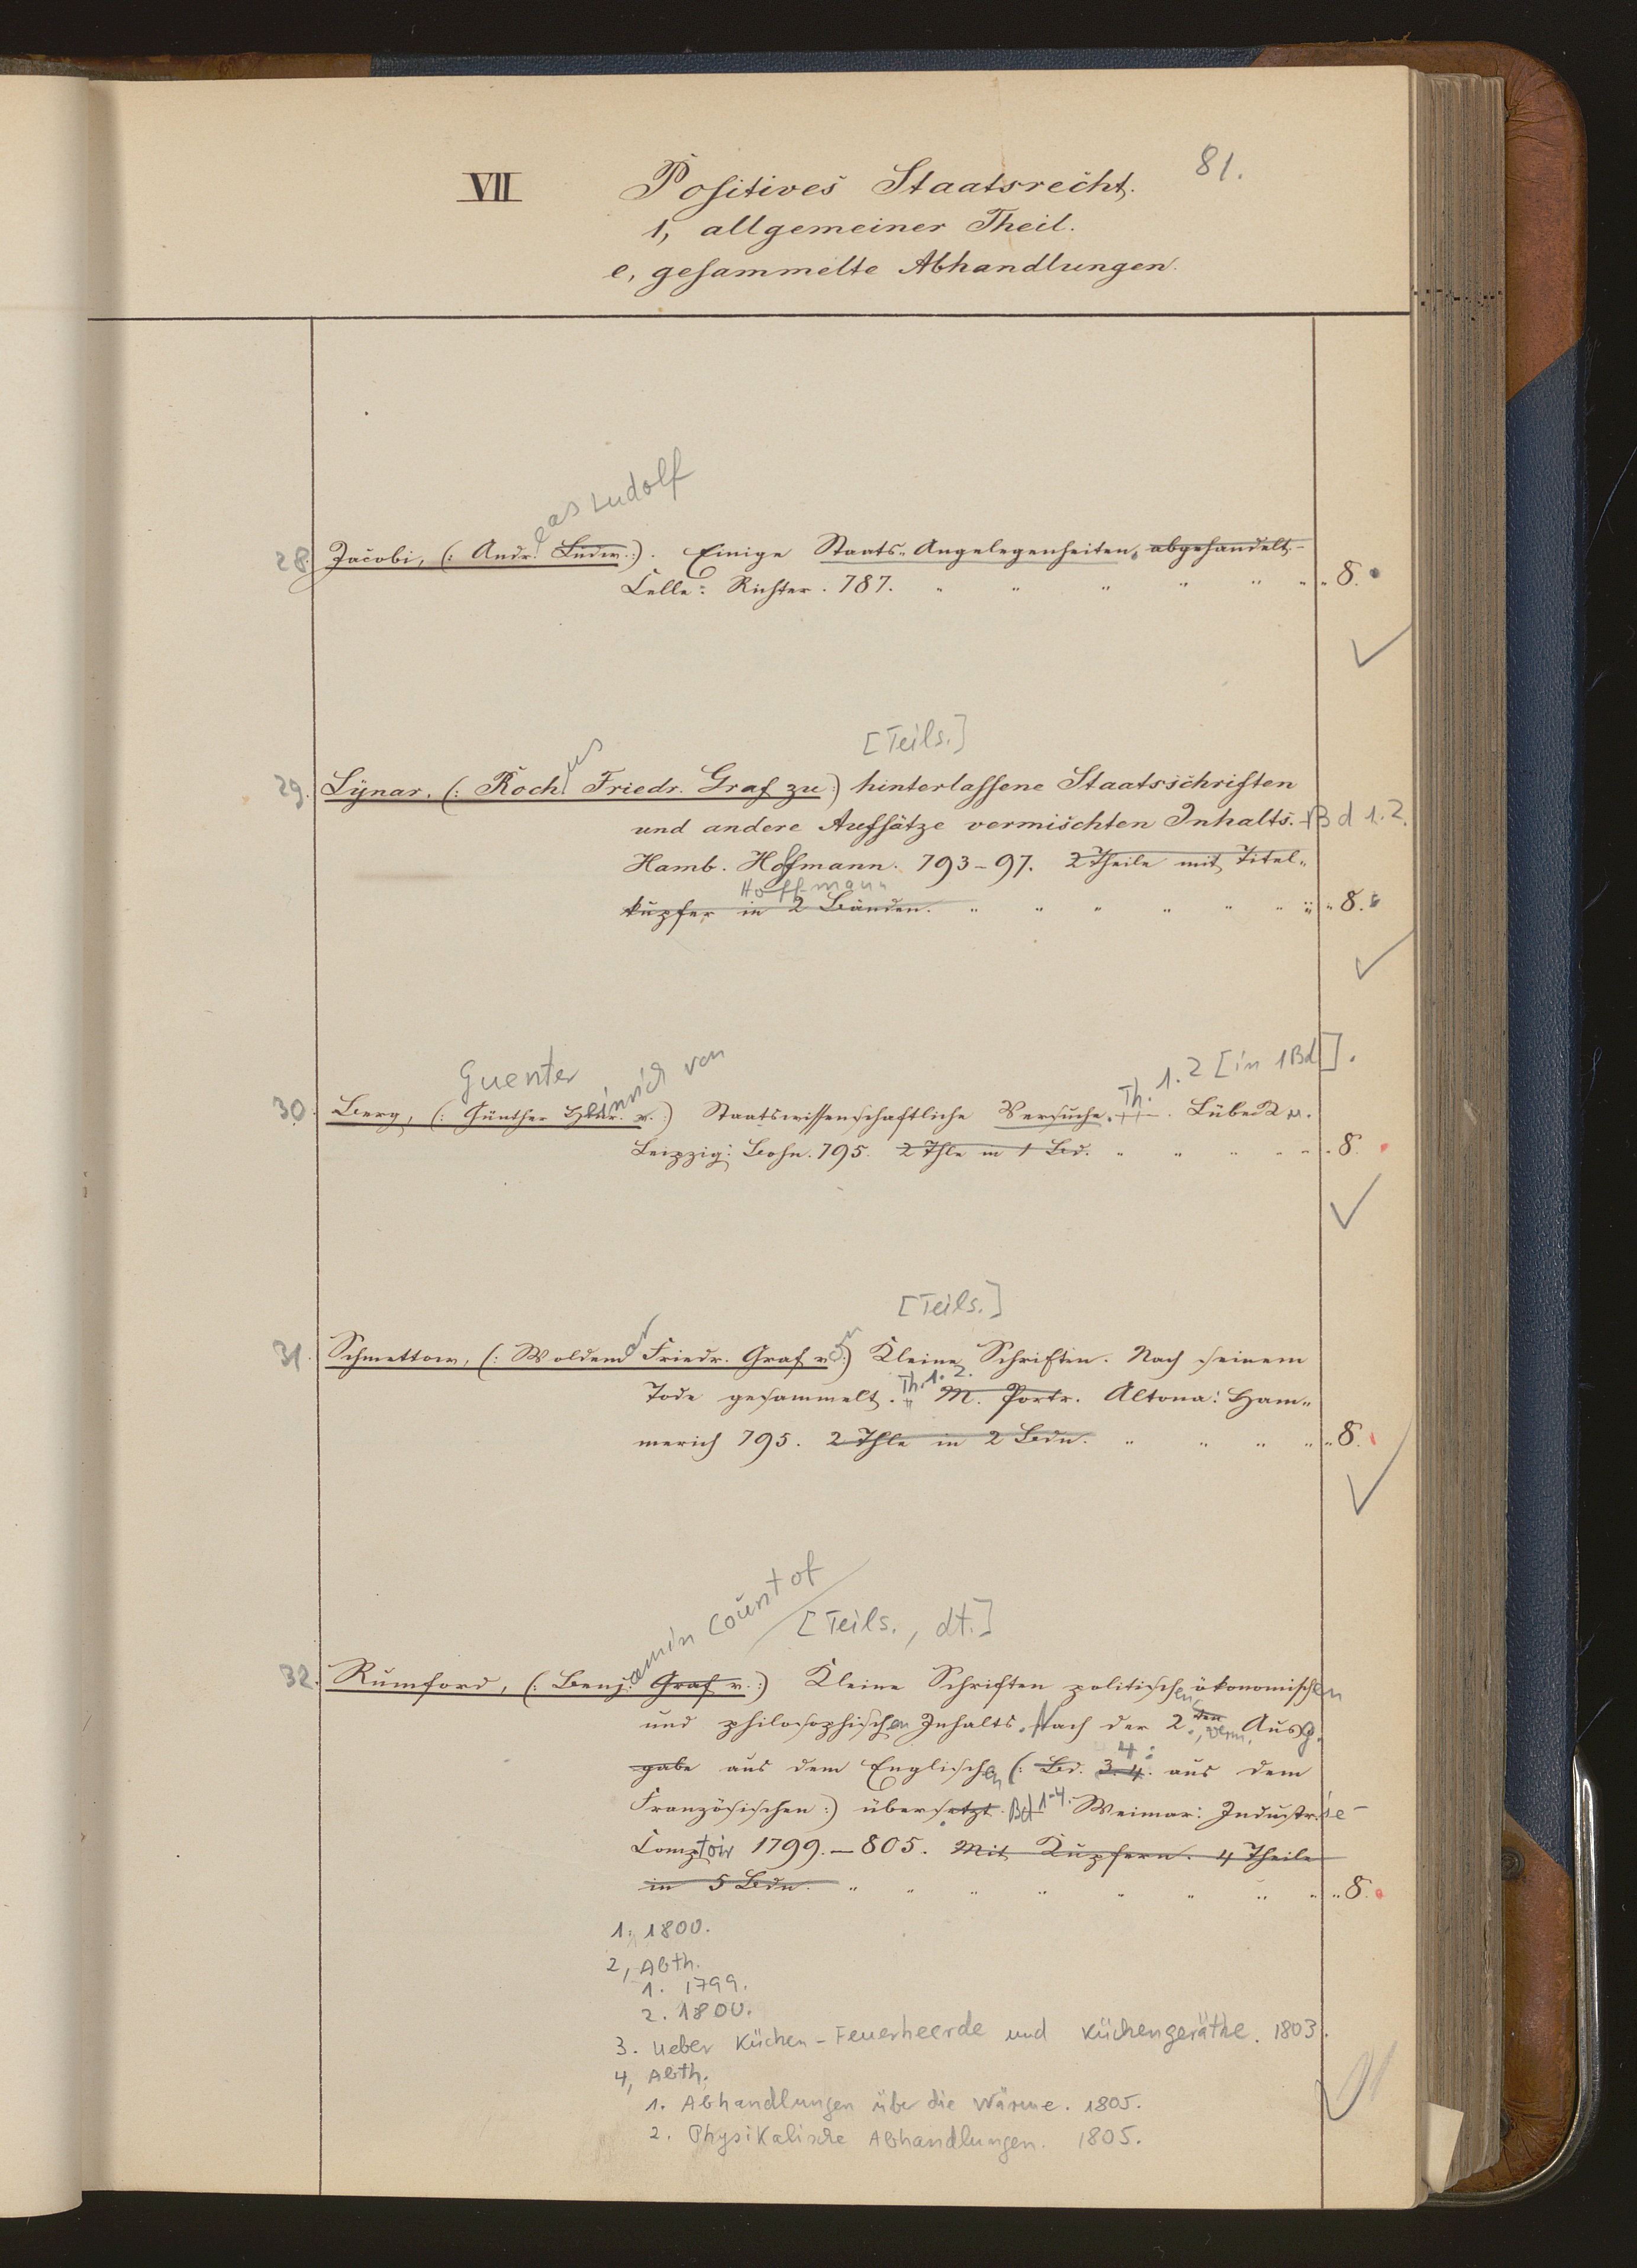 81.
VII Positives Staatsrecht.
1, allgemeiner Theil.
e, gesammelte Abhandlungen.
eas Ludolf
28. Jacobi, (: Andr. Ludw. :). Einige Staats-Angelegenheiten, abgehandelt.
Celle: Richter. 787. " " " " " " " 8.
[Teils.]
us
29. Lynar, (: Roch. Friedr. Graf zu :) hinterlassene Staatsschriften
und andere Aufsätze vermischten Inhalts. Bd 1.2.
Hamb. Hofmann. 793-97. 2 Theile mit Titel-
Hoffmann
kupfer in 2 Bänden. " " " " " " " 8.
Guenter einrich von Th. 1.2 [in 1 Bd].
30. Berg, (: Günther Heinr. v. :) Staatswissenschaftliche Versuche. Lübeck u.
Leipzig: Bohn. 795. 2 Thle in 1 Bd. " " " " " " 8.
[Teils.]
ar on
31. Schmettow, (: Woldem. Friedr. Graf v. :) Kleine Schriften. Nach seinem
Th. 1.2.
Tode gesammelt. M. Portr. Altona: Ham-
merich 795. 2 Thle in 2 Bdn. " " " " " 8.
amin Count of
[Teils., dt.]
32. Rumford, (: Benj. Graf v. :) Kleine Schriften politischen ökonomischen
und philosophischen Inhalts. Nach der 2.ten, verm. Ausg.
4:
gabe aus dem Englischen (: Bd. 3.4. aus dem
Französischen :) übersetzt. Bd 1-4. Weimar: Industrie-
Comptoir 1799.-805. Mit Kupfern. 4 Theile
in 5 Bdn. " " " " " " " " 8.
1, 1800.
2, Abth.
1. 1799.
2. 1800.
3. Ueber Küchen-Feuerheerde und Küchengeräthe. 1803.
4, Abth.
1. Abhandlungen über die Wärme. 1805.
2. Physikalische Abhandlungen. 1805.